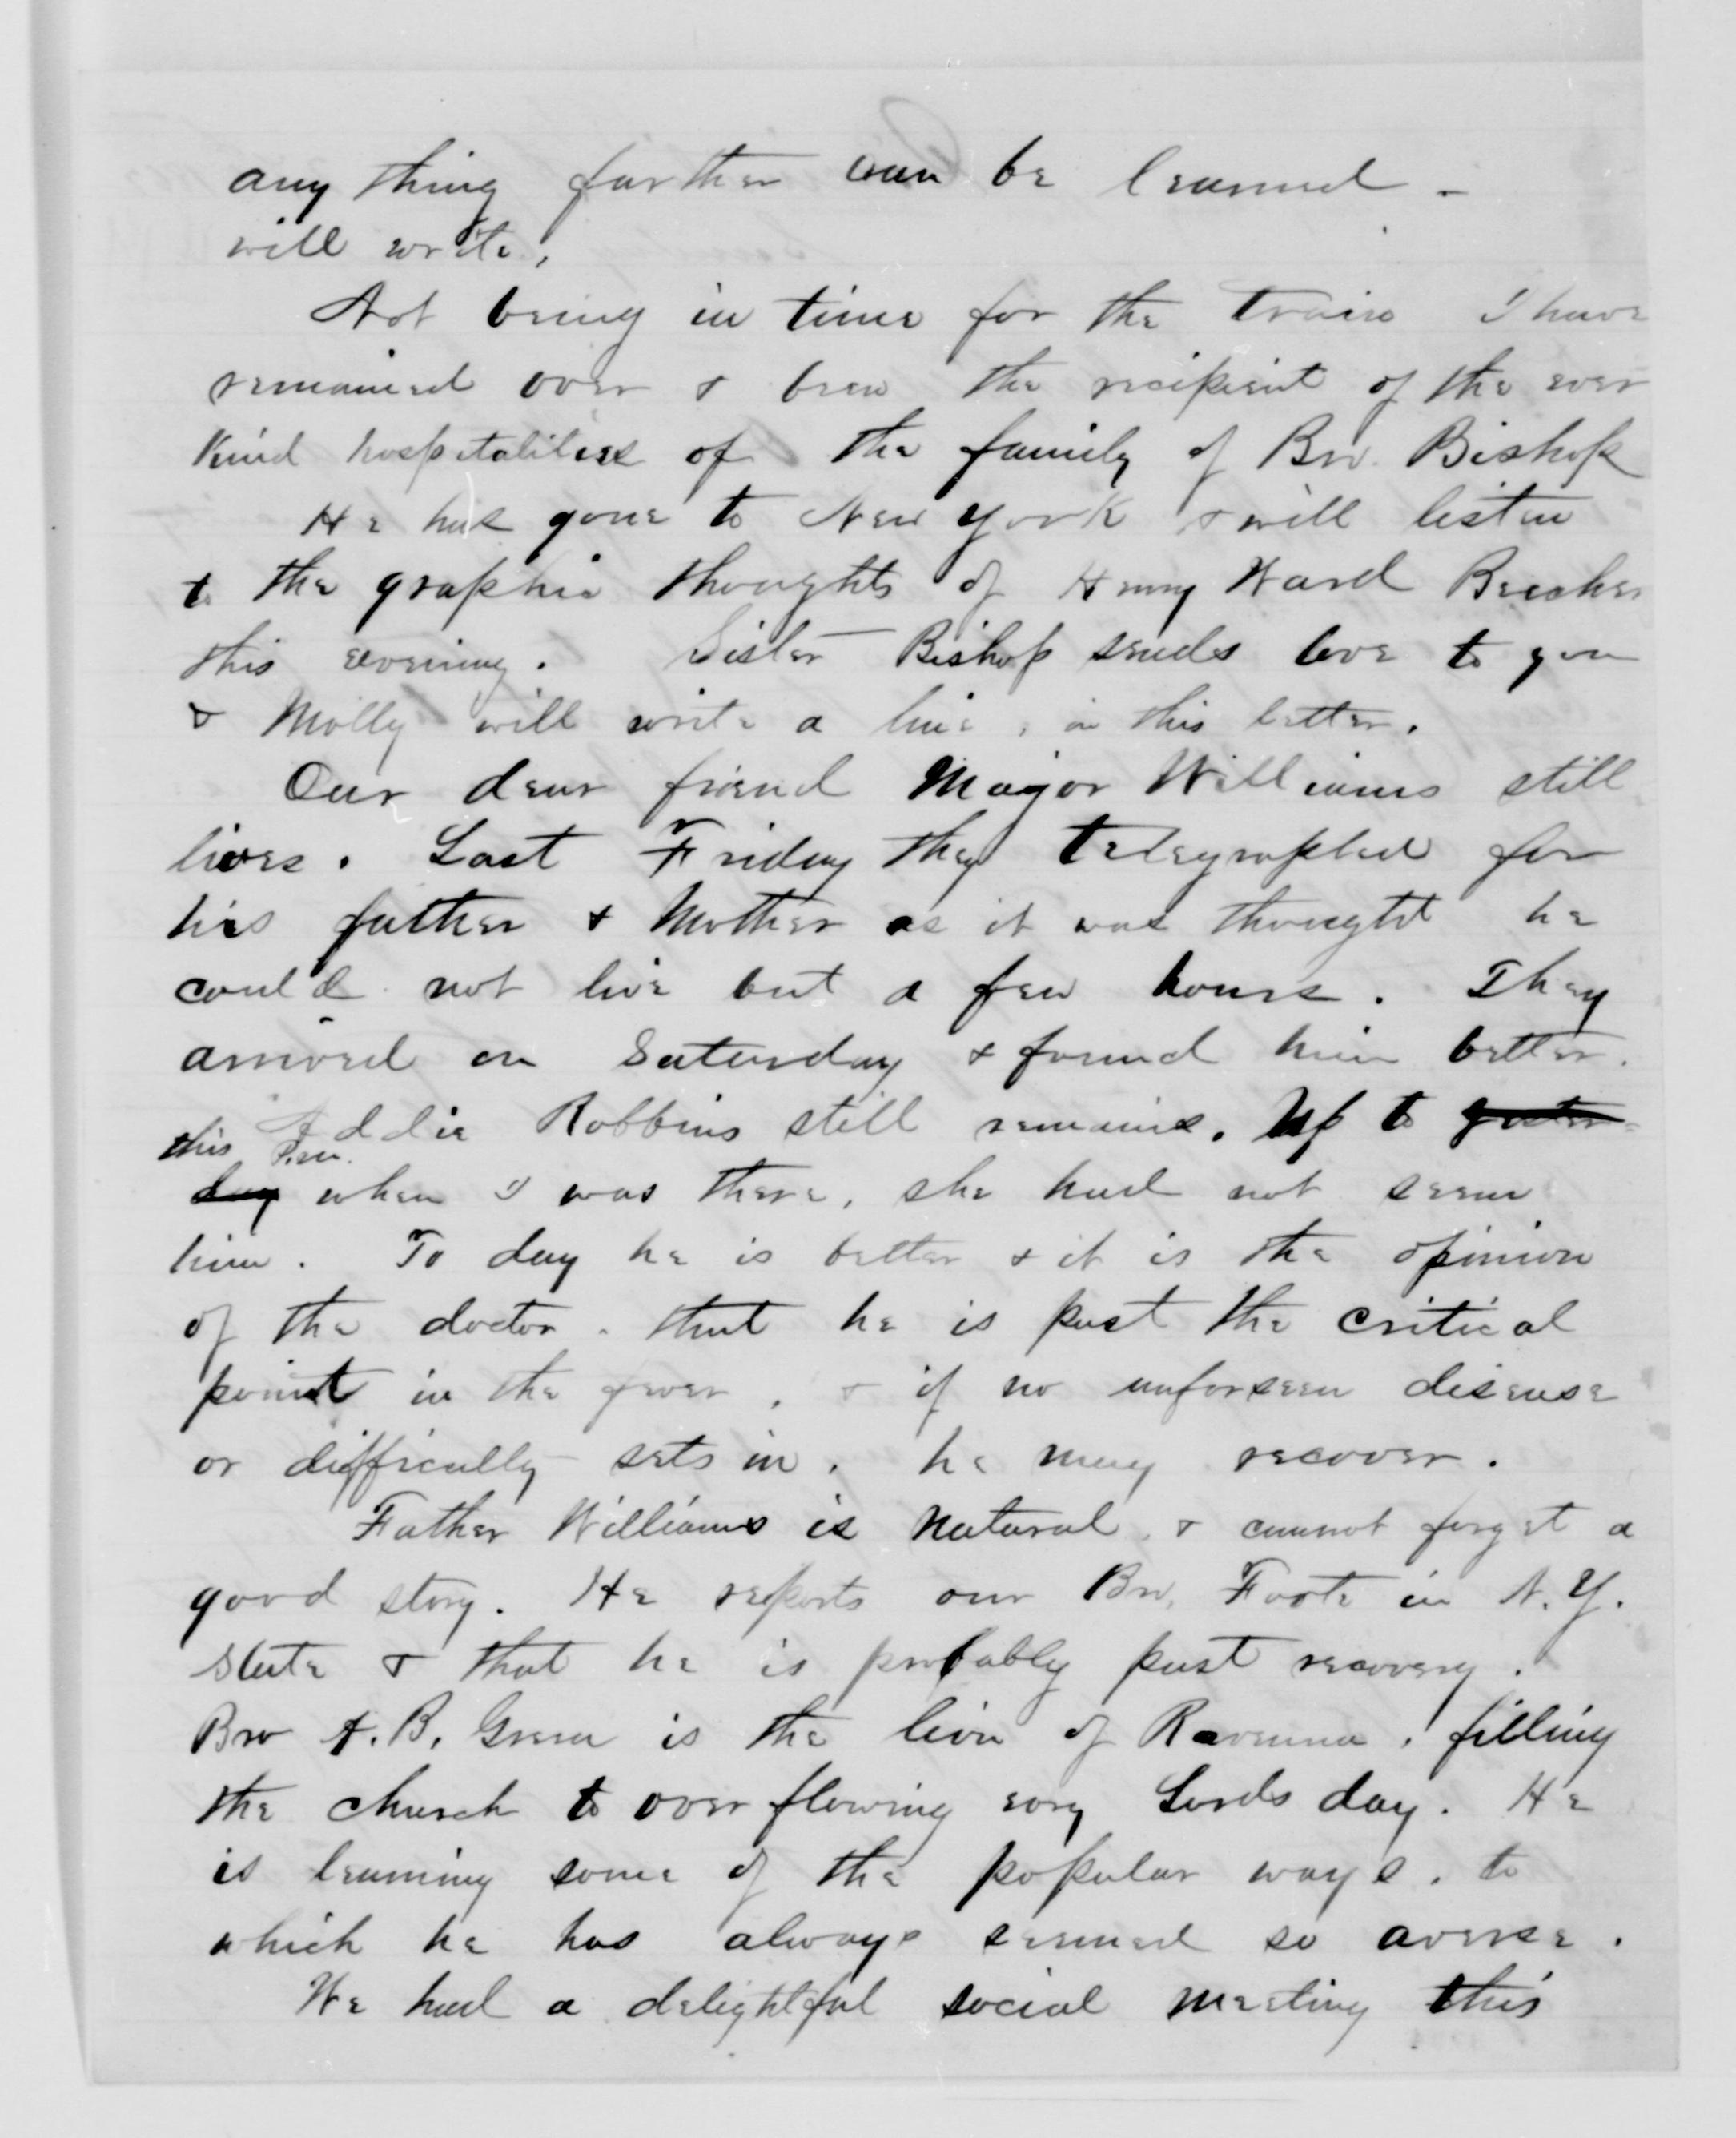 any thing further can be learned -
will write,
Not being in time for the train I have
remained over & been the recipient of the ever
kind hospitalities of the family of Bro. Bishop
He has gone to New York & will listen
to the graphic thoughts of Henry Ward Beecher
this evening. Sister Bishop sends love to you
& Molly will write a line, in this letter.
Our dear friend Major Williams still
lives. Last Friday they telegraphed for
his father & Mother as it was thought he
could not live but a few hours. They
arrived on Saturday & found him better.
Addie Robbins still remains. Up to yester-
this P.m.
day when I was there, she had not seen
him. To day he is better & it is the opinion
of the doctor - that he is past the critical
point in the fever, & if no unforseen disease
or difficulty sets in, he may recover.
Father Williams is natural, & cannot forget a
good story. He reports our Bro. Foote in N.Y.
State & that he is probably past recovery.
Bro A. B. Green is the lion of Ravenna, filling
the church to over flowing evry Lords day. He
is learning some of the popular ways, to
which he has always seemed so averse.
We had a delightful social meeting this